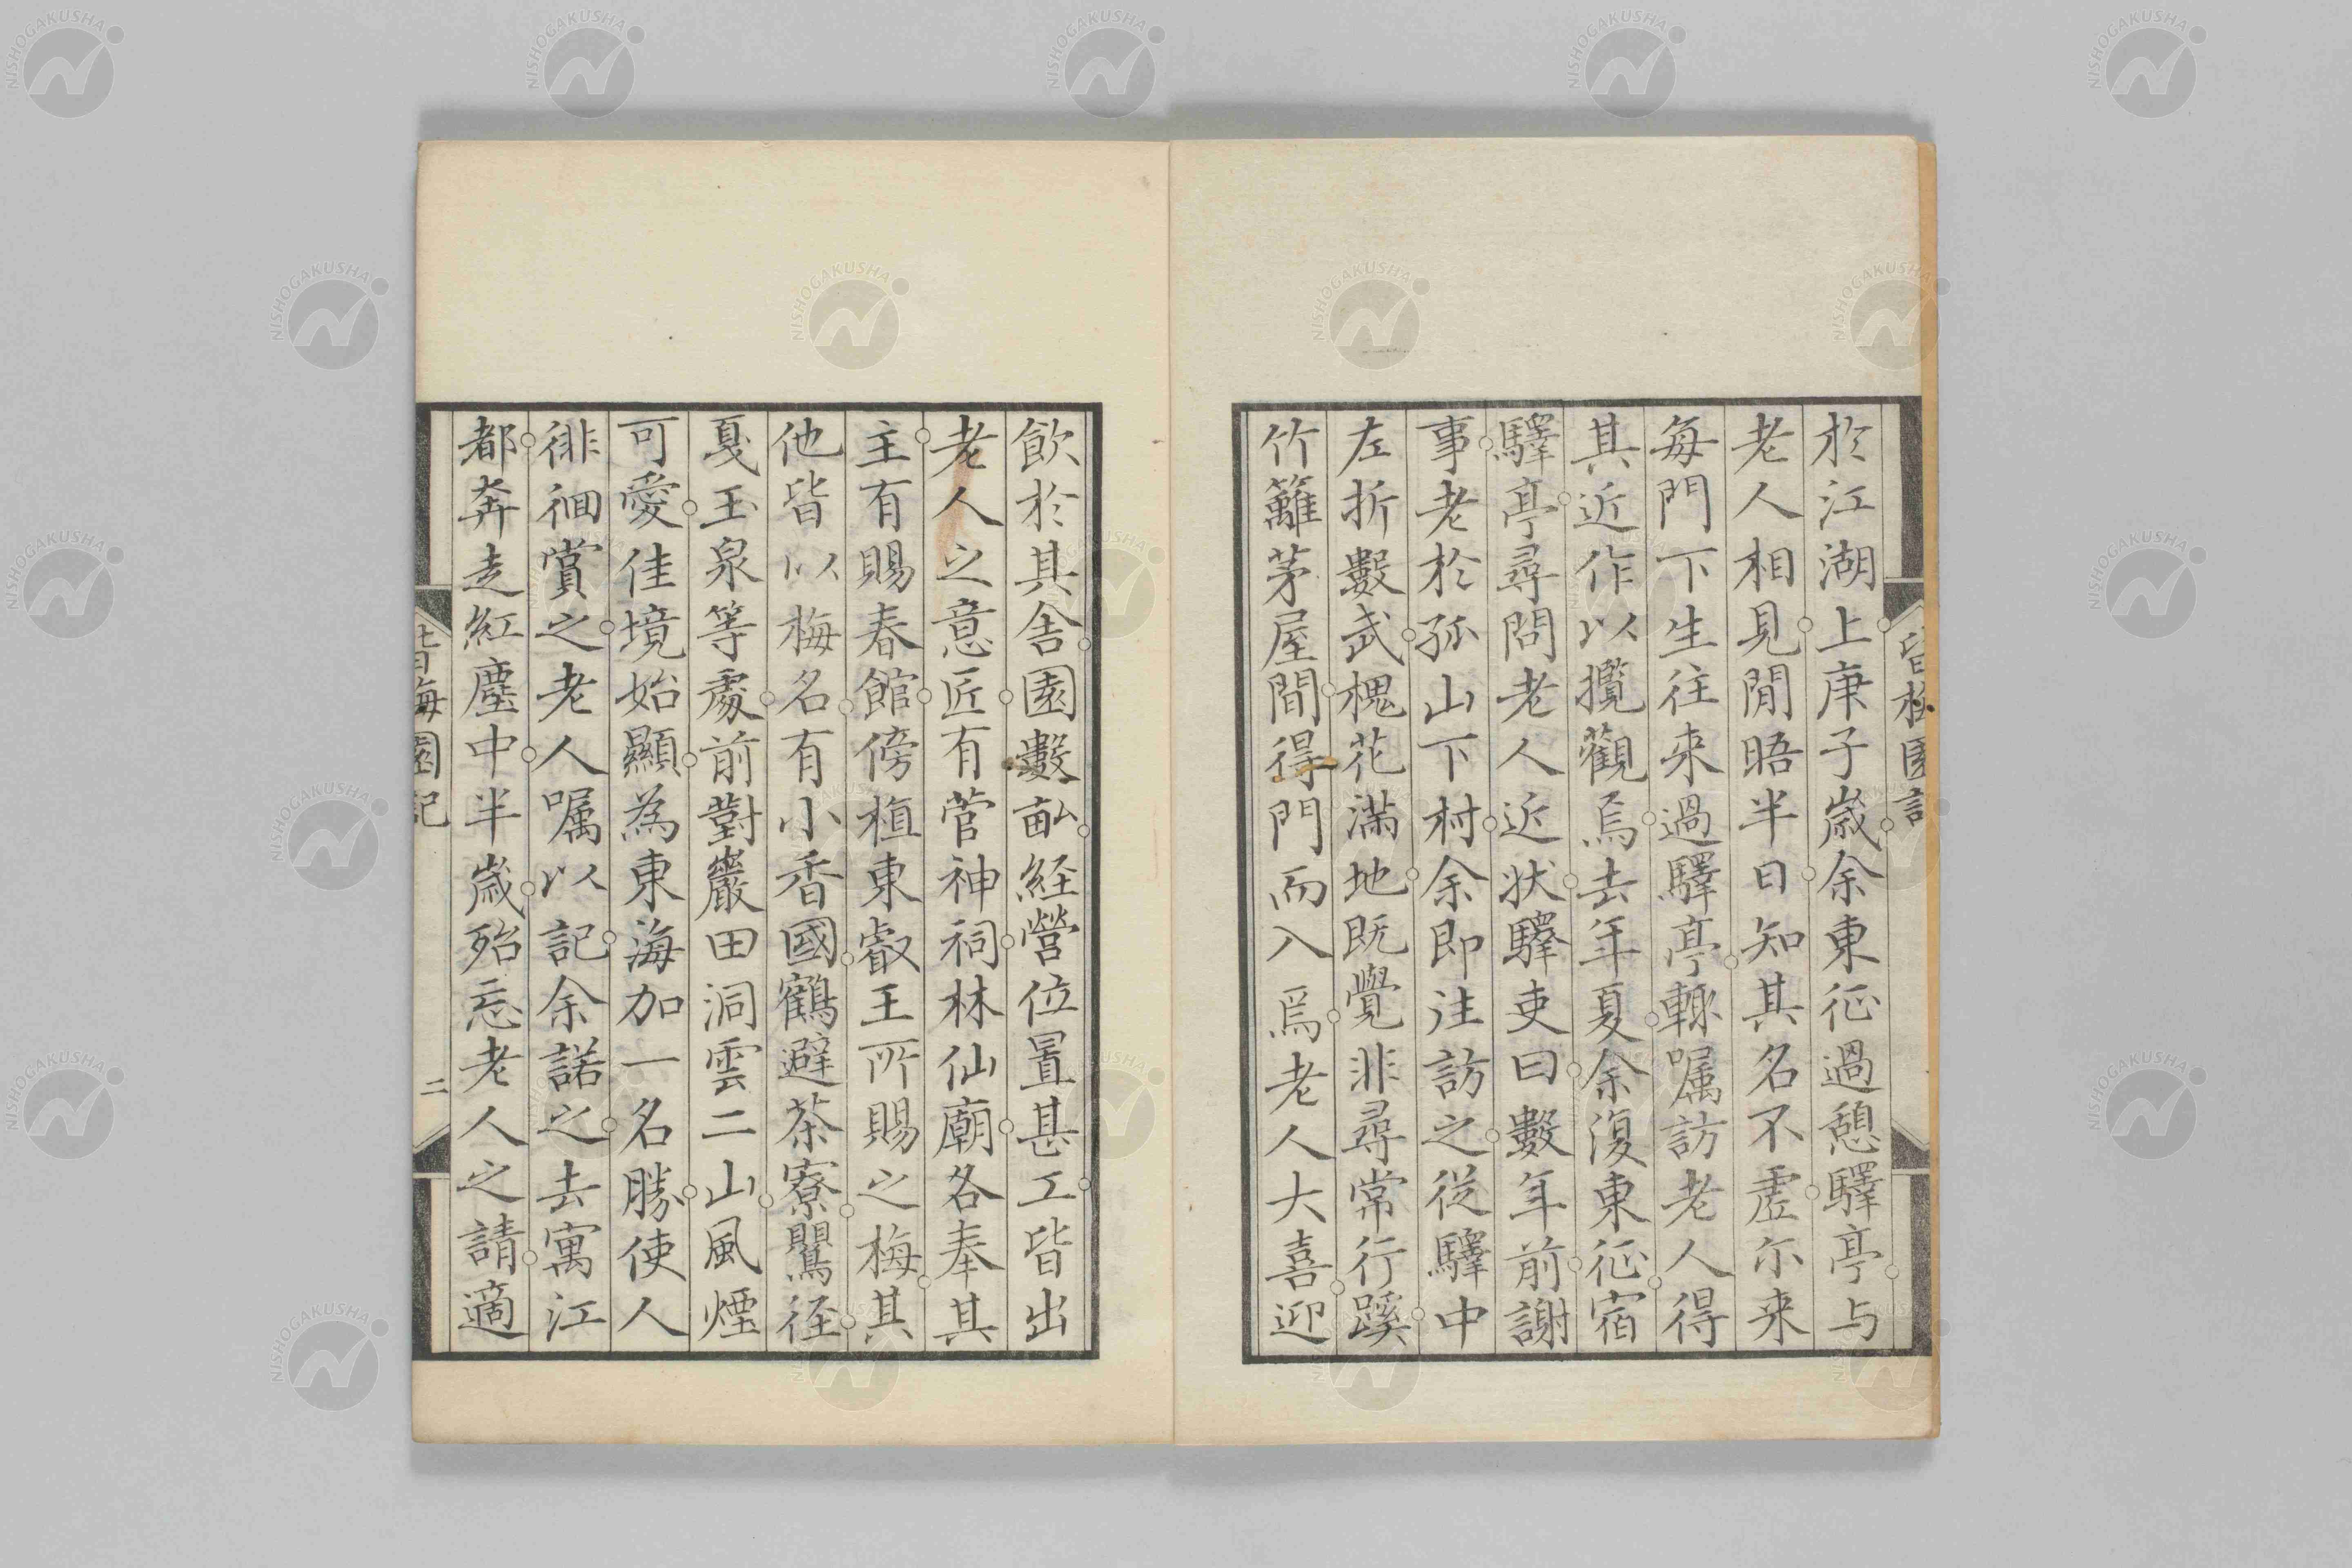 於江湖上庚子歳余東征過憩驛亭与
老人相見閒晤半日知其名不虚尓来
毎門下生往来過驛亭輙嘱訪老人得
其近作以攬觀焉去年夏余復東征宿
驛亭尋問老人近状驛吏曰數年前謝
事老於孤山下村余即注訪之從驛中
左折數武槐花滿地既覺非尋常行蹊
竹籬茅屋間得門而入焉老人大喜迎
飲於其舎園數畝経營位置甚工皆出
老人之意匠有菅神祠林仙廟各奉其
主有賜春館傍植東叡王所賜之梅其
他皆以梅名有小香國鶴避茶寮鷪径
戛玉泉等處前對巖田洞雲二山風煙
可愛佳境始顯為東海加一名勝使人
徘徊賞之老人嘱以記余諾之去寓江
都奔走紅塵中半歳殆忘老人之請適
皆梅園記
二
NISHOGAKUSHA